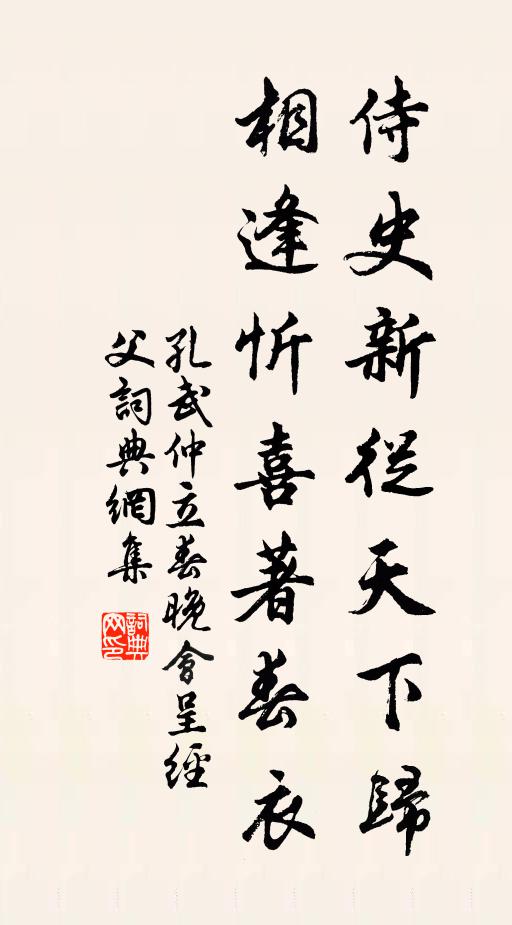 侍史新從天下歸
相逢忻喜著春衣
孔武仲立春晚會呈經
父詞典網集
詞典网印